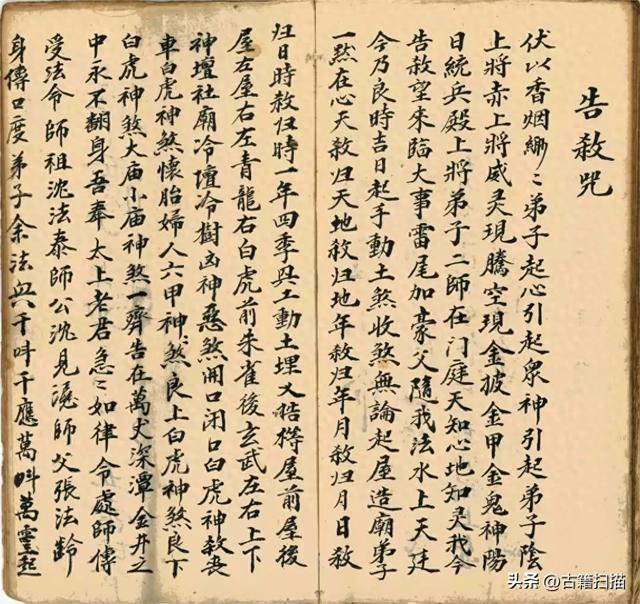 告殺咒
伏以香烟綁〻弟子起心引起眾神引起弟子陰
上將赤上將威灵現騰空現金披金甲金鬼神陽
日統兵殿上將弟子二師在门庭天知心地知灵我今
告殺望來臨大事雷尾加豪父隨我法水上天廷
今乃良時吉日起手動土煞收煞無論起屋造廟弟子
一㸃在心天殺归天地殺归地年殺归年月殺归月日殺
归日時殺归時一年四季兴工動土埋义
屋前屋後
屋左屋右左青龍右白虎前朱雀後玄武左右上下
神壇社廟冷壇冷樹凶神惡煞開口闭口白虎神殺喪
車白虎神煞懷胎婦人六甲神煞艮上白虎神煞艮下
白虎神煞大庙小庙神煞一齊告在萬丈深潭金井之
中永不翻身吾奉太上老君急〻如律令處師傳
受法令師祖沈法泰師公沈見澆師父張法齡
身傳口度弟子余法兴千叫千應萬叫萬靈起
头条@古籍扫描